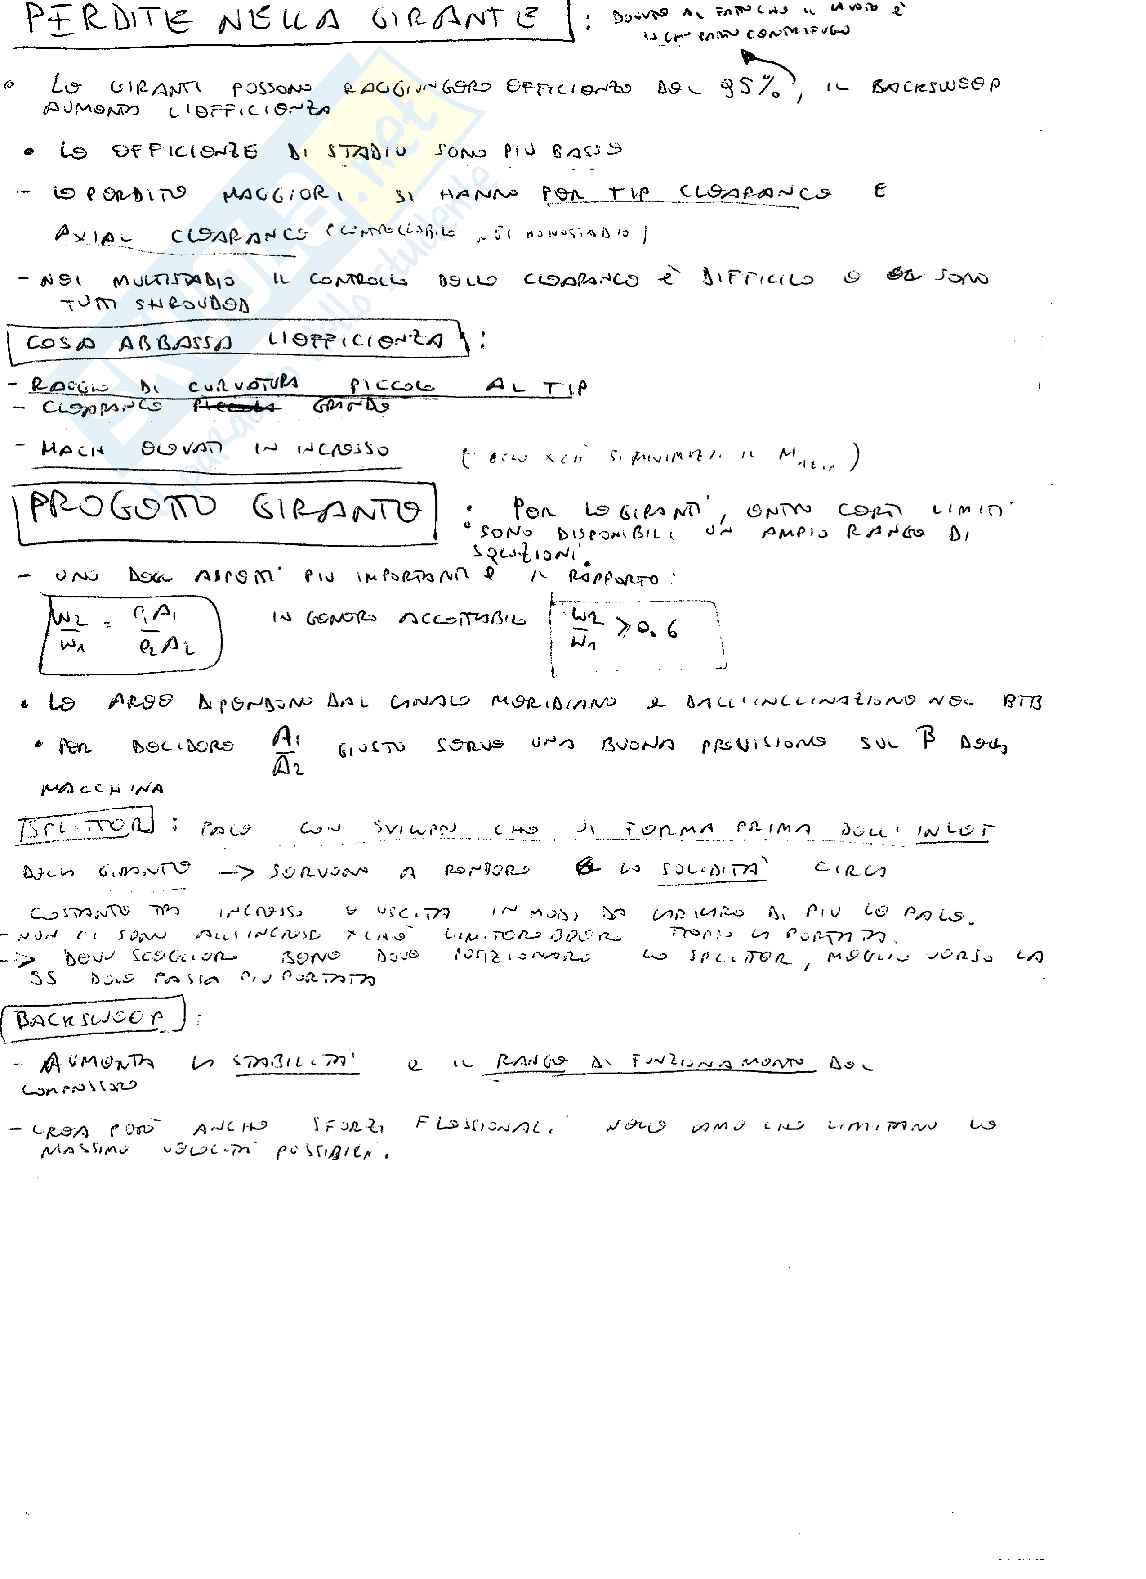 PERDITE NELLA GIRANTE : DOVUTO AL FATTO CHE IL LAVORO È
IN GRAN PARTE CENTRIFUGO
• LE GIRANTI POSSONO RAGGIUNGERE EFFICIENZE DEL 95%, IL BACKSWEEP
AUMENTA L'EFFICIENZA
• LE EFFICIENZE DI STADIO SONO PIÙ BASSE
- LE PERDITE MAGGIORI SI HANNO PER TIP CLEARANCE E
AXIAL CLEARANCE (CONTROLLABILE SI MONOSTADIO)
- NEI MULTISTADIO IL CONTROLLO DELLE CLEARANCE È DIFFICILE E SONO
TUTTI SHROUDED
COSA ABBASSA L'EFFICIENZA :
- RAGGIO DI CURVATURA PICCOLO AL TIP
- CLEARANCE GRANDE
- MACH ELEVATI IN INGRESSO (ECCO XCHÈ SI MINIMIZZA IL M)
PROGETTO GIRANTE • PER LE GIRANTI, ENTRO CERTI LIMITI
• SONO DISPONIBILI UN AMPIO RANGE DI
SOLUZIONI.
- UNO DEGLI ASPETTI PIÙ IMPORTANTI È IL RAPPORTO:
W2/W1 = ρ1A1/ρ2A2 IN GENERE ACCETTABILE W2/W1 ≥ 0.6
• LE AREE DIPENDONO DAL CANALE MERIDIANO E DALL'INCLINAZIONE NEL BTB
• PER DECIDERE A1/A2 GIUSTO SERVE UNA BUONA PREVISIONE SUL β DELLA
MACCHINA
SPLITTER : PALE CON SVILUPPO CHE SI FORMA PRIMA DELL'INLET
DELLA GIRANTE -> SERVONO A RENDERE LA SOLIDITÀ CIRCA
COSTANTE TRA INGRESSO E USCITA IN MODO DA CARICARE DI PIÙ LE PALE.
- NON CI SONO ALL'INGRESSO XCHÈ LIMITEREBBERO TROPPO LA PORTATA.
-> DEVI SCEGLIERE BENE DOVE POSIZIONARE LO SPLITTER, MEGLIO VERSO LA
SS DOVE PASSA PIÙ PORTATA
BACKSWEEP :
- AUMENTA LA STABILITÀ E IL RANGE DI FUNZIONAMENTO DEL
COMPRESSORE
- CREA PERÒ ANCHE SFORZI FLESSIONALI NELLE LAME CHE LIMITANO LE
MASSIME VELOCITÀ POSSIBILI.